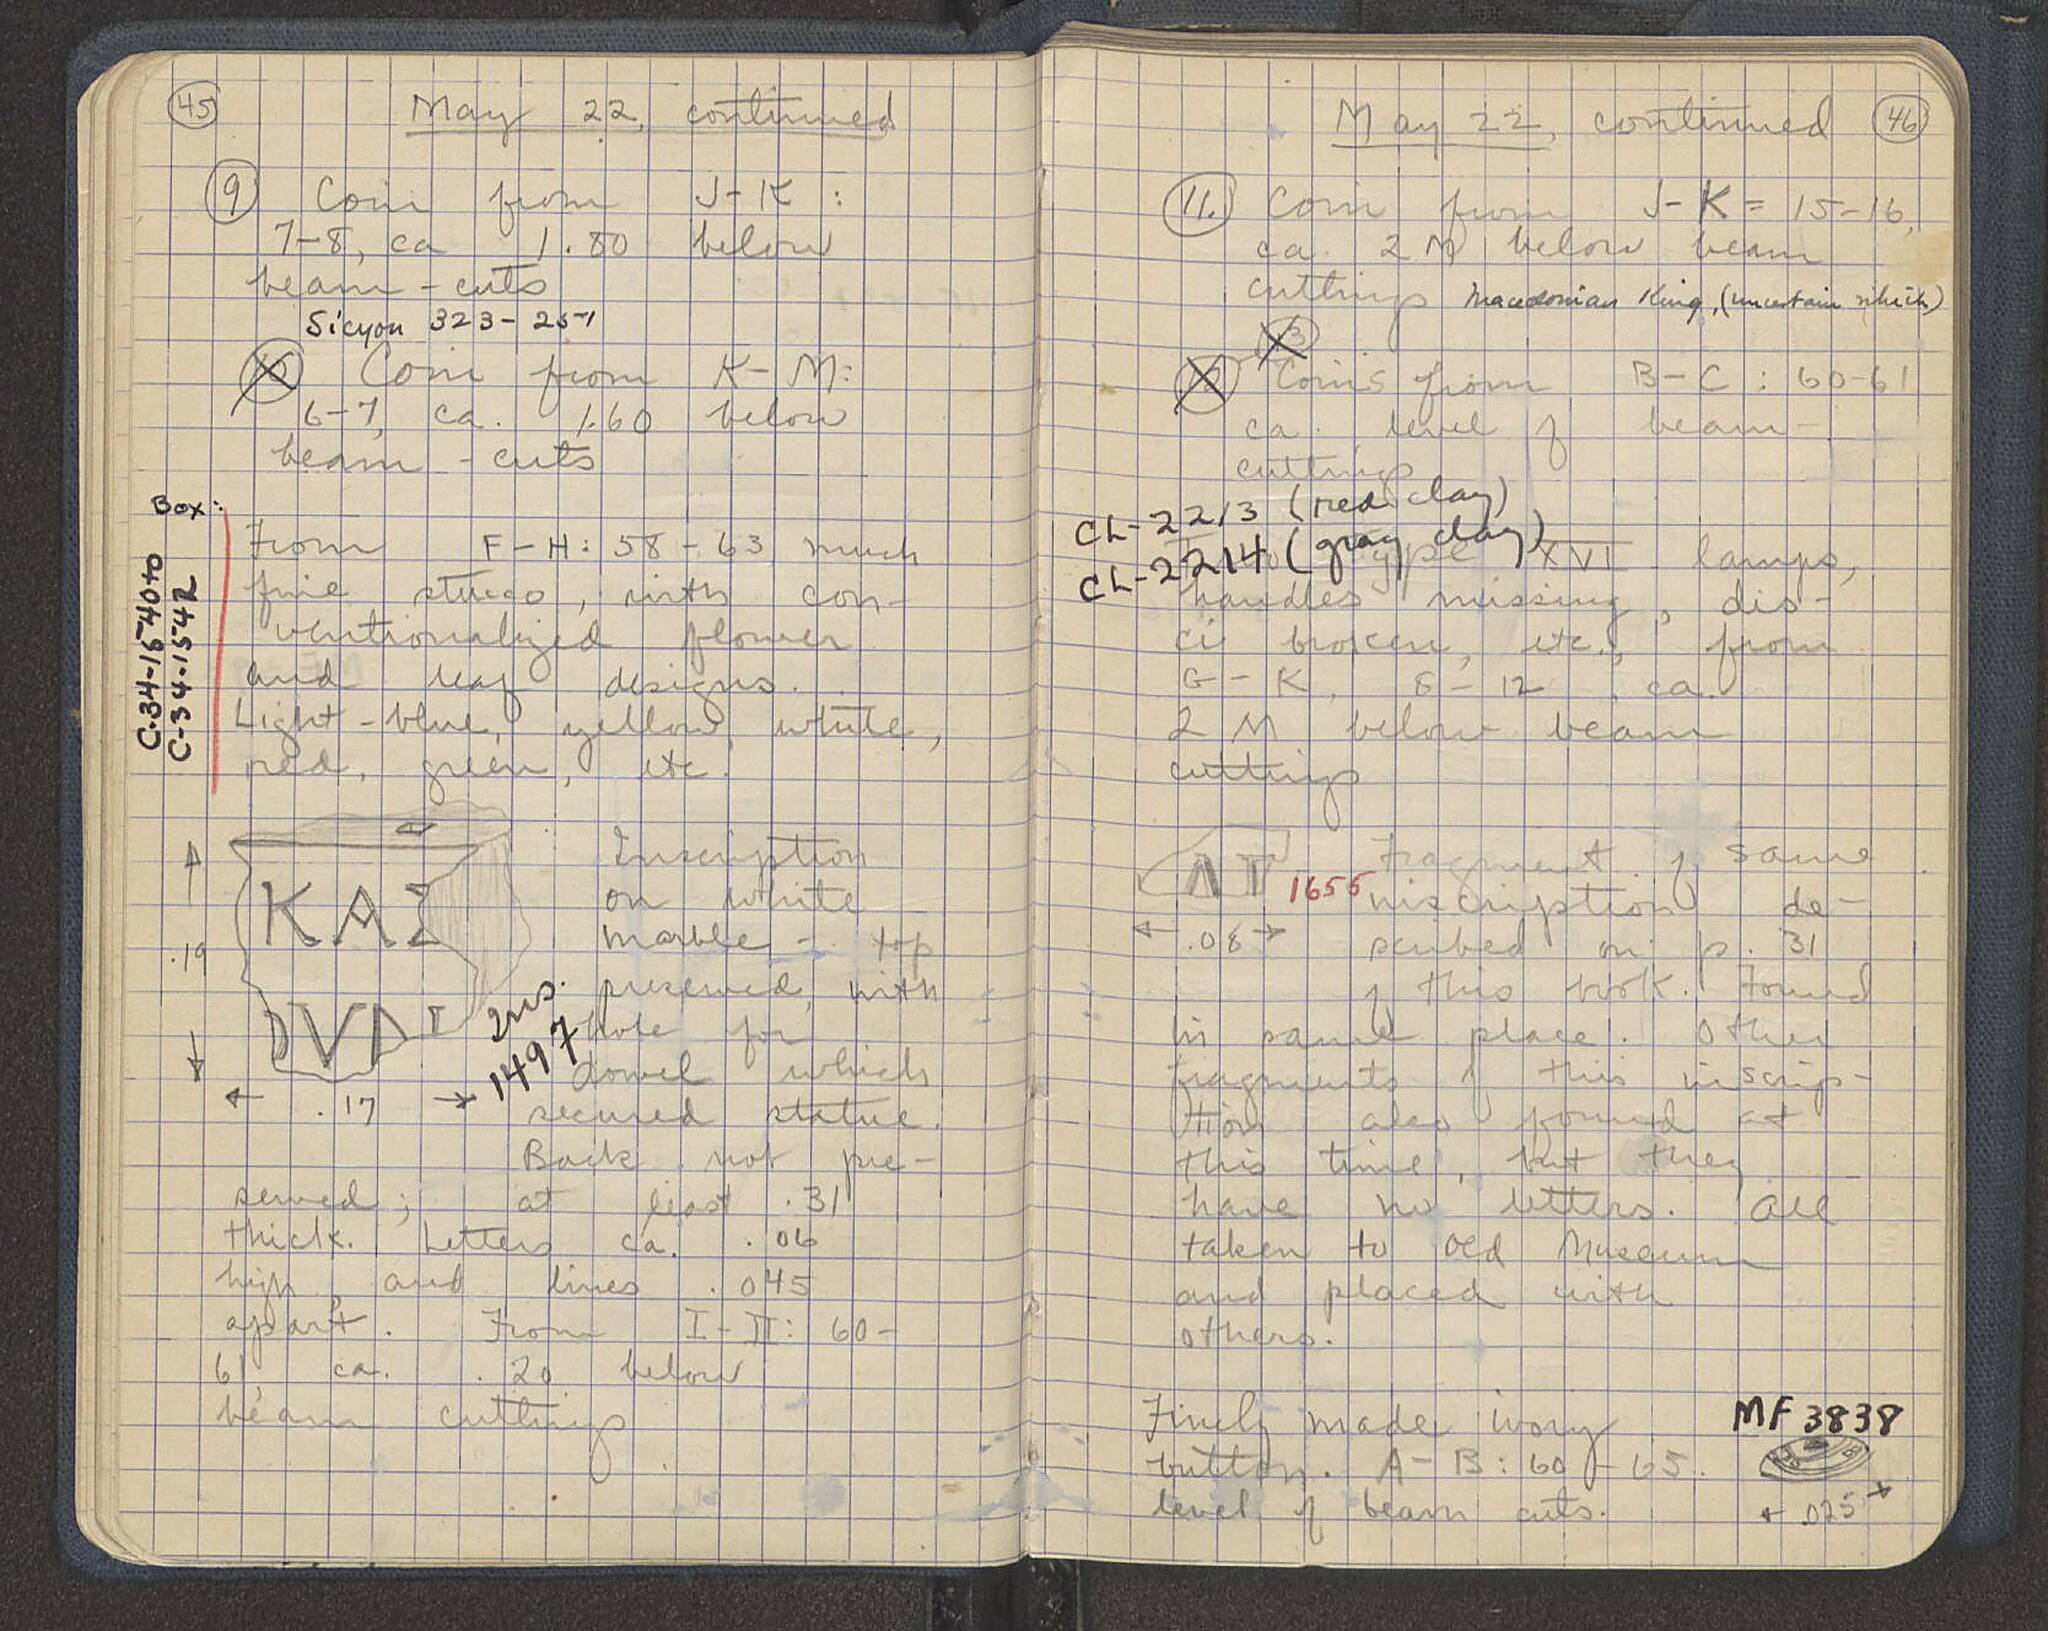 45
May 22, continued
9 Coin from J-K :
7-8, ca 1.80 below
beam-cuts
Sicyon 323-251
10 Coin from K-M:
6-7, ca. 1.60 below
beam-cuts
Box:
C-34-1540 to
C-34-1542
From F-H: 58-63, much
fine stucco, with con-
ventionalized flower
and leaf designs.
Light-blue, yellow, white,
red, green, etc.
ΚΑΣ
.19
.17
Ins.
1497
Inscription
on white
marble - top
preserved, with
hole for
dowel which
secured statue.
Back not pre-
served; at least .31
thick. Letters ca. .06
high, and lines .045
apart. From I-II: 60-
61, ca. .20 below
beam cuttings
May 22, continued 46
11. Coin from J-K = 15-16,
ca. 2 M below beam
cuttings Macedonian King, (uncertain which)
13
12 Coins from B-C : 60-61
ca. level of beam-
cuttings
CL-2213 (red clay)
CL-2214 (gray clay)
Two Type XVI lamps,
handles missing, dis-
ci broken, etc., from
G-K, 8-12, ca.
2 M below beam
cuttings
1655
.08
Fragment of same
inscription de-
scribed on p. 31
of this book. Found
in same place. Other
fragments of this inscrip-
tion also found at
this time, but they
have no letters. All
taken to Old Museum
and placed with
others.
Finely made ivory
button. A-B: 60-65.
level of beam cuts.
MF 3838
.025